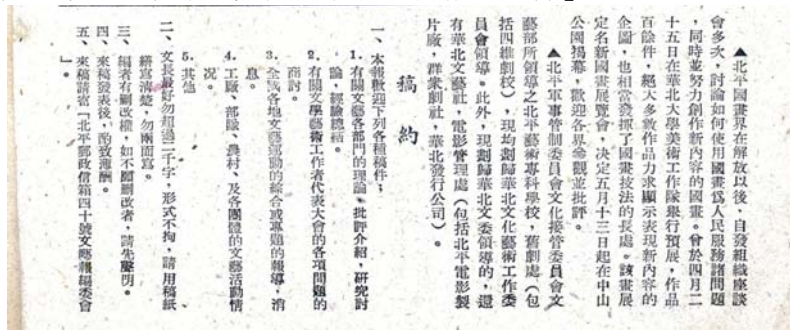 ▲北平國畫界在解放以後，自發組織座談
會多次，討論如何使用國畫爲人民服務諸問題
，同時並努力創作新內容的國畫。曾於四月二
十五日在華北大學美術工作隊舉行預展，作品
百餘件，絕大多數作品力求顯示表現新內容的
企圖，也相當發揮了國畫技法的長處。該畫展
定名新國畫展覽會，决定五月十三日起在中山
公園揭幕，歡迎各界參觀並批評。
▲北平軍事管制委員會文化接管委員會文
藝部所領導之北平藝術專科學校，舊劇處（包
括四維劇校），現均劃歸華北文化藝術工作委
員會領導。此外，現劃歸華北文委領導的，還
有華北文藝社，電影管理處（包括北平電影製
片廠，群衆劇社，華北發行公司）。
稿約
一、本報歡迎下列各種稿件；
1.有關文藝各部門的理論、批評介紹，研究討
論，經驗總結。
2.有關文學藝術工作者代表大會的各項問題的
商討。
3.全國各地文藝運動的綜合或專題的報導，消
息。
4.工廠、部隊、農村、及各團體的文藝活動情
况。
5.其他
二、文長最好勿超過二千字，形式不拘，請用稿紙
繕寫清楚，勿兩面寫。
三、編者有刪改權，如不願刪改者，請先聲明。
四、來稿發表後，酌致薄酬。
五、來稿請寄「北平郵政信箱四十號文藝報編委會
」。